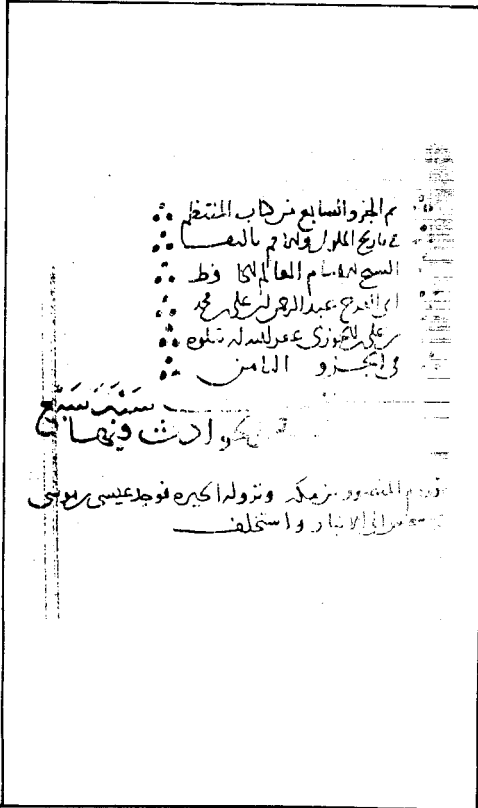 تم الجزو السابع من كتاب المنتظم
في تاريخ الملوك والامم تاليف
الشيخ الامام العالم الحافظ
ابي الفرج عبد الرحمن بن علي بن محمد
بن علي الجوزي عفر الله له يتلوه
في الجزو الثامن
سنة سبع
الحوادث فيها
قدوم المنصور من مكه ونزوله الحيره فوجد عيسى بن موسى
الى الانبار واستخلف